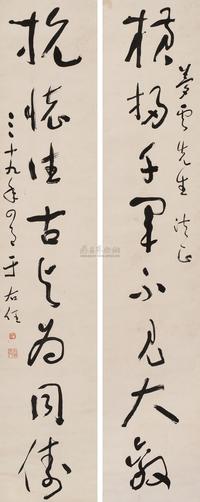 橫掃千軍不見大敵
夢雲先生法正
抗懷往古與為同儔
三十九年四月 于右任